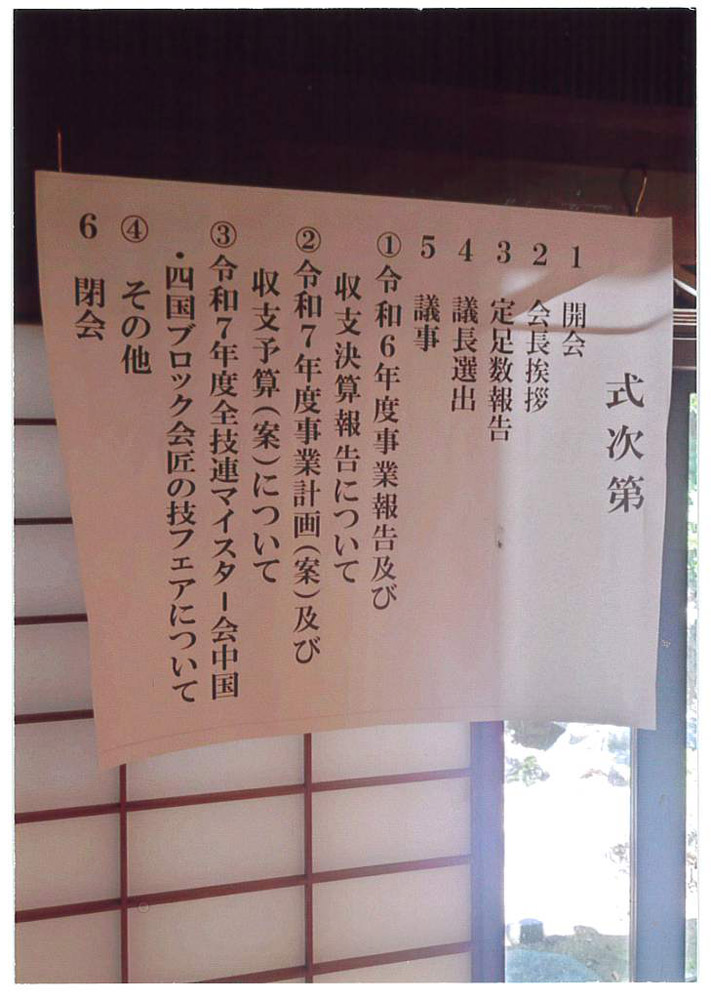 式次第
1 開会
2 会長挨拶
3 定足数報告
4 議長選出
5 議事
①令和6年度事業報告及び
収支決算報告について
②令和7年度事業計画(案)及び
収支予算(案)について
③令和7年度全技連マイスター会中国
・四国ブロック会匠の技フェアについて
④ その他
6 閉会